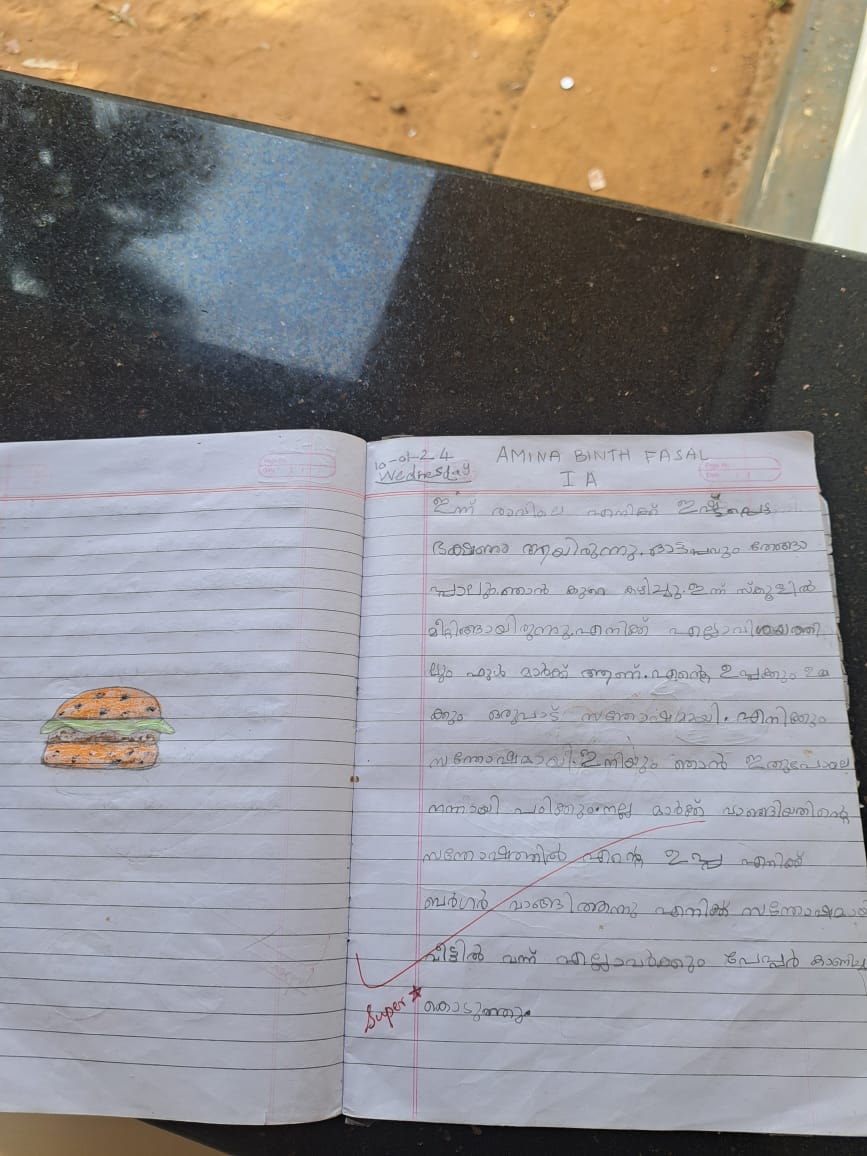 10-01-24
Wednesday
AMINA BINTH FASAL
I A
ഇന്ന് രാവിലെ എനിക്ക് ഇഷ്ടപ്പെട്ട
ഭക്ഷണം ആയിരുന്നു. ഓട്ടപ്പവും തേങ്ങാ
പ്പാലും. ഞാൻ കുറെ കഴിച്ചു. ഇന്ന് സ്കൂളിൽ
മീറ്റിങ്ങായിരുന്നു. എനിക്ക് എല്ലാവിശയത്തി
ലും ഫുൾ മാർക്ക് ആണ്. എന്റെ ഉപ്പക്കും ഉമ്മ
ക്കും ഒരുപാട് സന്തോഷമായി. എനിക്കും
സന്തോഷമായി. ഇനിയും ഞാൻ ഇതുപോലെ
നന്നായി പഠിക്കും. നല്ല മാർക്ക് വാങ്ങിയതിന്റെ
സന്തോഷത്തിൽ എന്റെ ഉപ്പ എനിക്ക്
ബർഗർ വാങ്ങി തന്നു എനിക്ക് സന്തോഷമായി
വീട്ടിൽ വന്ന് എല്ലാവർക്കും പേപ്പർ കാണിച്ചു
കൊടുത്തു.
Super